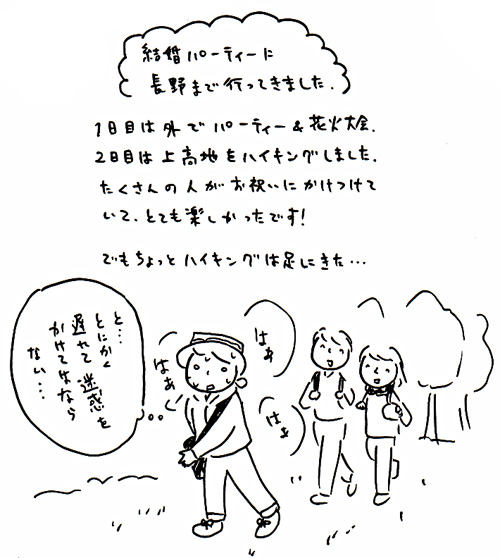 結婚パーティーに
長野まで行ってきました.
1日目は外でパーティー&花火大会.
2日目は上高地をハイキングしました.
たくさんの人がお祝いにかけつけて
いて、とても楽しかったです!
でもちょっとハイキングは足にきた…
と…
とにかく
遅れて迷惑を
かけてはなら
ない…
はぁ
はぁ
はぁ